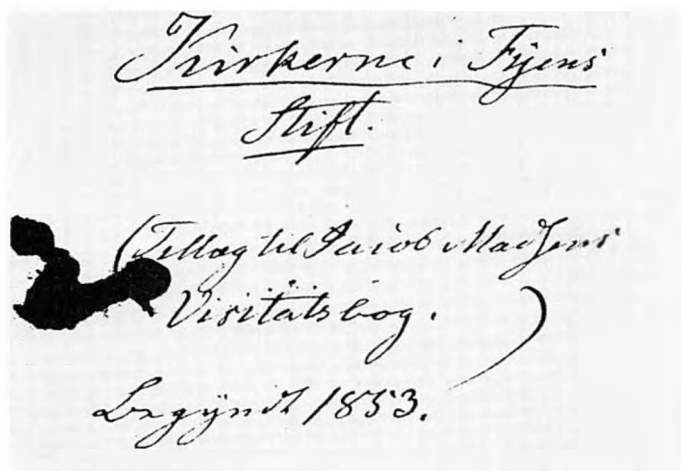 Kirkerne i Fyens
Stift.
(Tillæg til Jacob Madsens
Visitatsbog.)
Begyndt 1853.